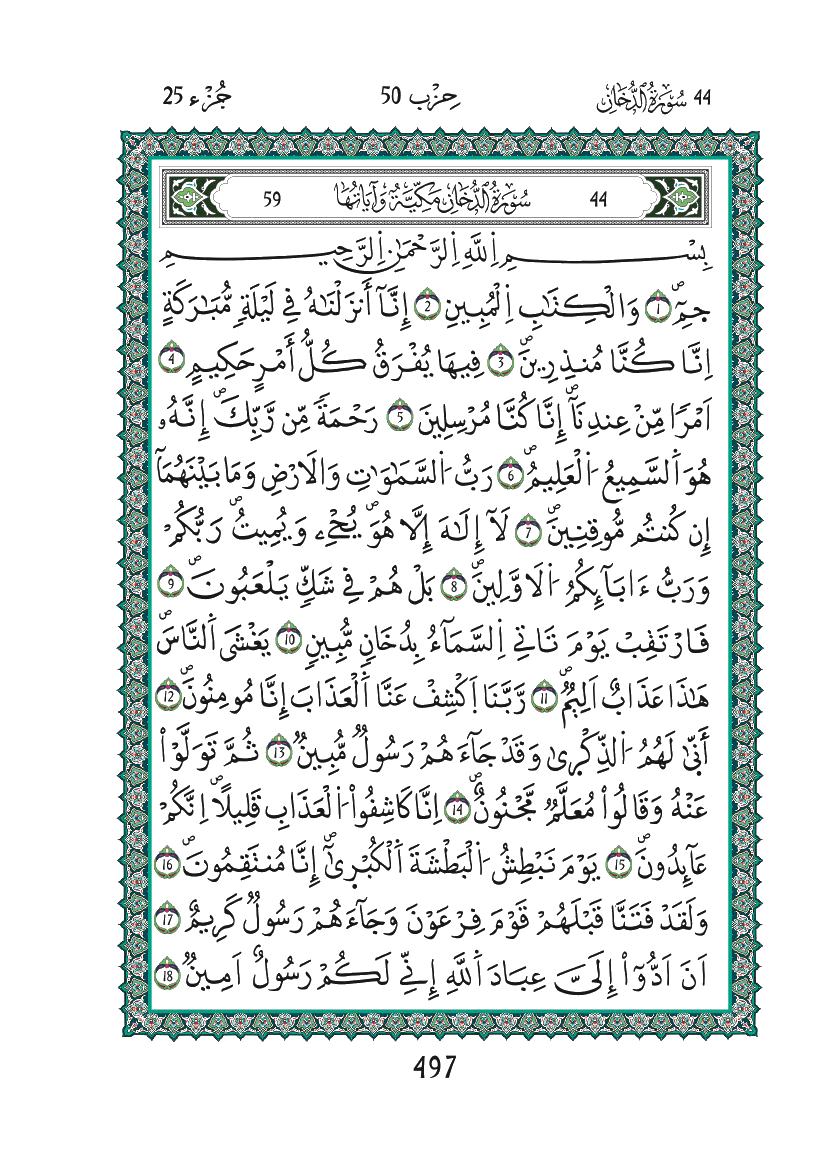 44 سُورَةُ الدُّخَانِ حِزْب 50 جُزْء 25
44 سُورَةُ الدُّخَانِ مَكِّيَّةٌ وَآيَاتُهَا 59
بِسْمِ اِ۬للَّهِ اِ۬لرَّحْمَٰنِ اِ۬لرَّحِيمِ
جمِٓۖ 1 وَالْكِتَٰبِ اِ۬لْمُبِينِ 2 إِنَّآ أَنزَلْنَٰهُ فِے لَيْلَةٖ مُّبَٰرَكَةٍ
اِنَّا كُنَّا مُنذِرِينَۖ 3 فِيهَا يُفْرَقُ كُلُّ أَمْرٍ حَكِيمٍ 4
اَمْراٗ مِّنْ عِندِنَآۖ إِنَّا كُنَّا مُرْسِلِينَ 5 رَحْمَةٗ مِّن رَّبِّكَۖ إِنَّهُۥ
هُوَ اَ۬لسَّمِيعُ اُ۬لْعَلِيمُۖ 6 رَبُّ اُ۬لسَّمَٰوَٰتِ وَالَارْضِ وَمَا بَيْنَهُمَآ
إِن كُنتُم مُّوقِنِينَۖ 7 لَآ إِلَٰهَ إِلَّا هُوَۖ يُحْيِۦ وَيُمِيتُۖ رَبُّكُمْ
وَرَبُّ ءَابَآئِكُمُ اُ۬لَاوَّلِينَۖ 8 بَلْ هُمْ فِے شَكّٖ يَلْعَبُونَۖ 9
فَارْتَقِبْ يَوْمَ تَاتِے اِ۬لسَّمَآءُ بِدُخَانٖ مُّبِينٖ 10 يَغْشَى اَ۬لنَّاسَۖ
هَٰذَا عَذَابٌ اَلِيمٌۖ 11 رَّبَّنَا اَ۪كْشِفْ عَنَّا اَ۬لْعَذَابَ إِنَّا مُومِنُونَۖ 12
أَنّ۪ىٰ لَهُمُ اُ۬لذِّكْر۪ىٰ وَقَدْ جَآءَهُمْ رَسُولٞ مُّبِينٞ 13 ثُمَّ تَوَلَّوْاْ
عَنْهُ وَقَالُواْ مُعَلَّمٞ مَّجْنُونٌۖ 14 اِنَّا كَاشِفُواْ اُ۬لْعَذَابِ قَلِيلاًۖ اِنَّكُمْ
عَآئِدُونَۖ 15 يَوْمَ نَبْطِشُ اُ۬لْبَطْشَةَ اَ۬لْكُبْر۪ىٰٓۖ إِنَّا مُنتَقِمُونَۖ 16
وَلَقَدْ فَتَنَّا قَبْلَهُمْ قَوْمَ فِرْعَوْنَ وَجَآءَهُمْ رَسُولٞ كَرِيمٌ 17
اَنَ اَدُّوٓاْ إِلَيَّ عِبَادَ اَ۬للَّهِۖ إِنِّے لَكُمْ رَسُولٌ اَمِينٞ 18
497